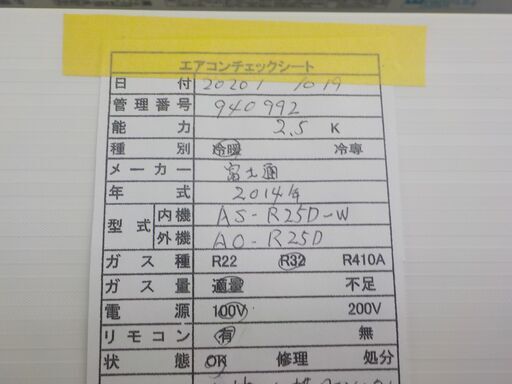 エアコンチェックシート
日付 2020 10 19
管理番号 940992
能力 2.5 K
種別 冷暖 冷専
メーカー 富士通
年式 2014年
型式 内機 AS-R25D-W
外機 AO-R25D
ガス種 R22 R32 R410A
ガス量 適量 不足
電源 100V 200V
リモコン 有 無
状態 OK 修理 処分